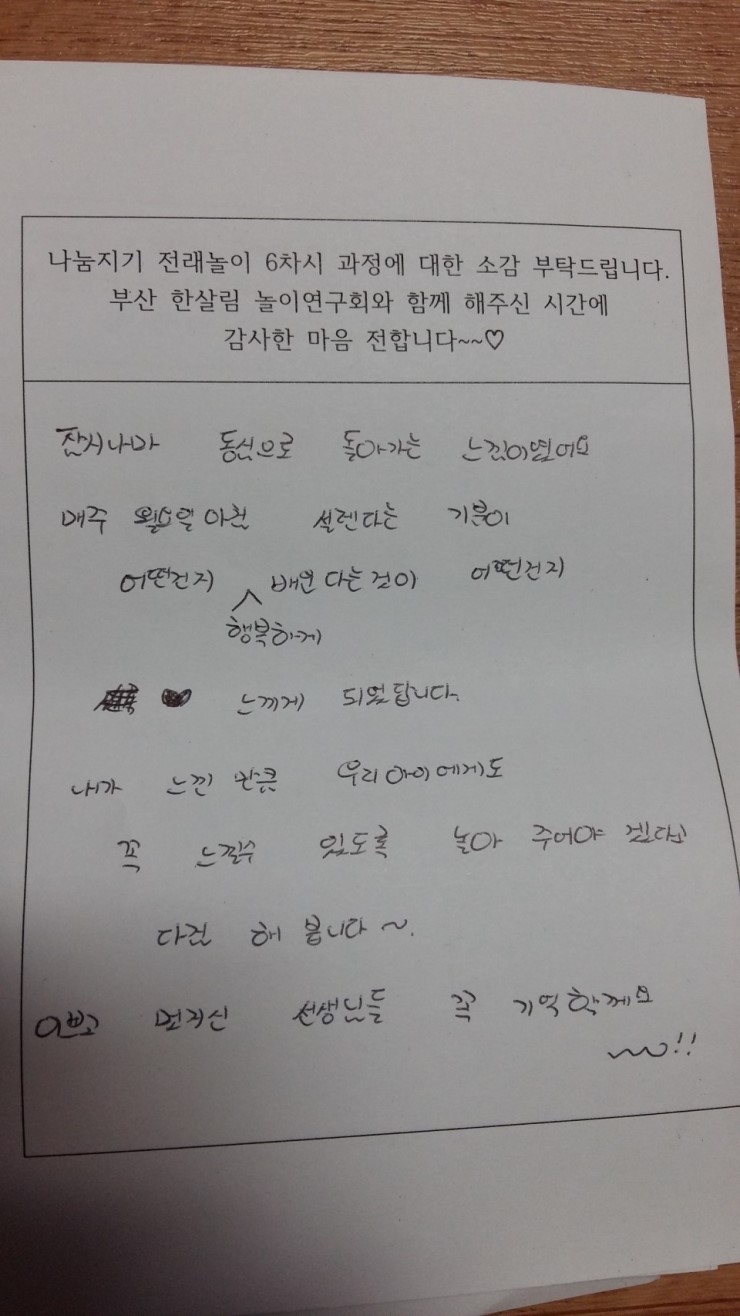 나눔지기 전래놀이 6차시 과정에 대한 소감 부탁드립니다.
부산 한살림 놀이연구회와 함께 해주신 시간에
감사한 마음 전합니다~~♡
잠시나마 동심으로 돌아가는 느낌이였어요
매주 월요일 아침 설렌다는 기분이
어떤건지 배운다는것이 어떤건지
행복하게
♥ 느끼게 되었답니다.
내가 느낀 만큼 우리아이에게도
꼭 느낄수 있도록 놀아 주어야 겠다고
다짐 해 봅니다~.
이쁘고 멋지신 선생님들 꼭 기억할께요
~~!!